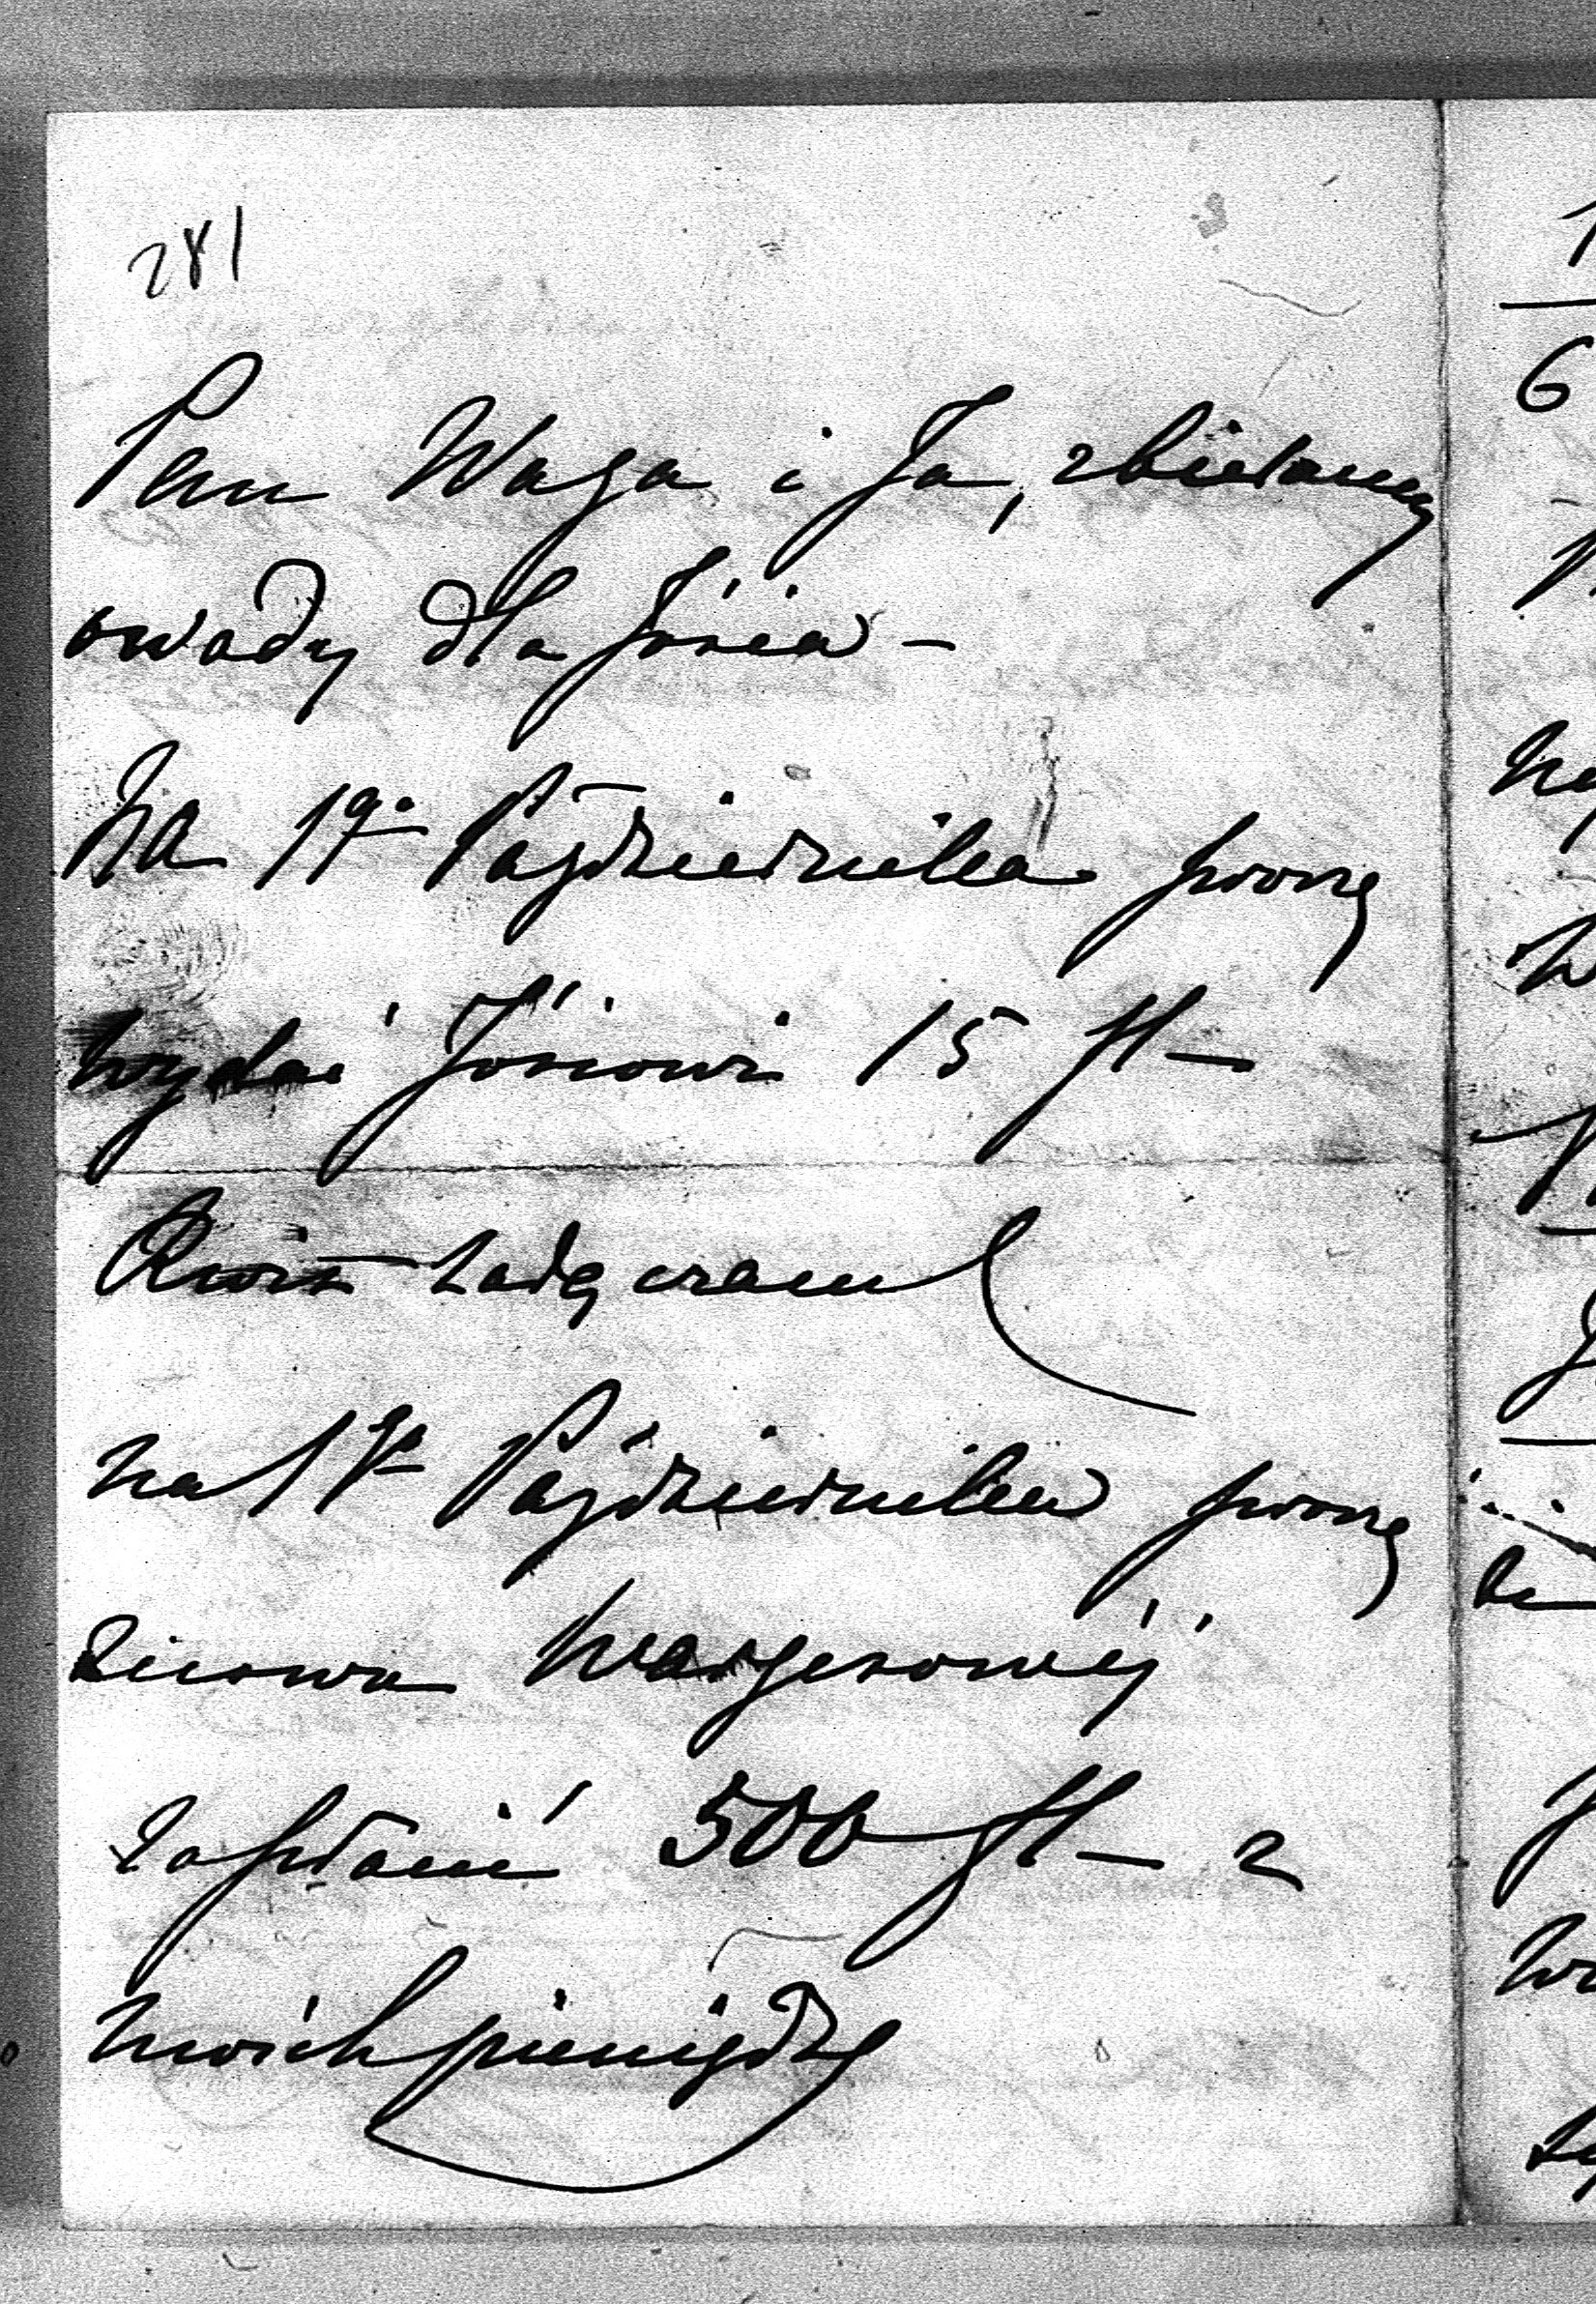 281
Pan Waga i Ja, zbieramy
owady dla Józia —
Na 1go Października proszę
wydać Józiowi 15 fl —
Kwit załączam
na 1go Października proszę
znowu
zapłacić 500 fl — z
moich pieniędzy